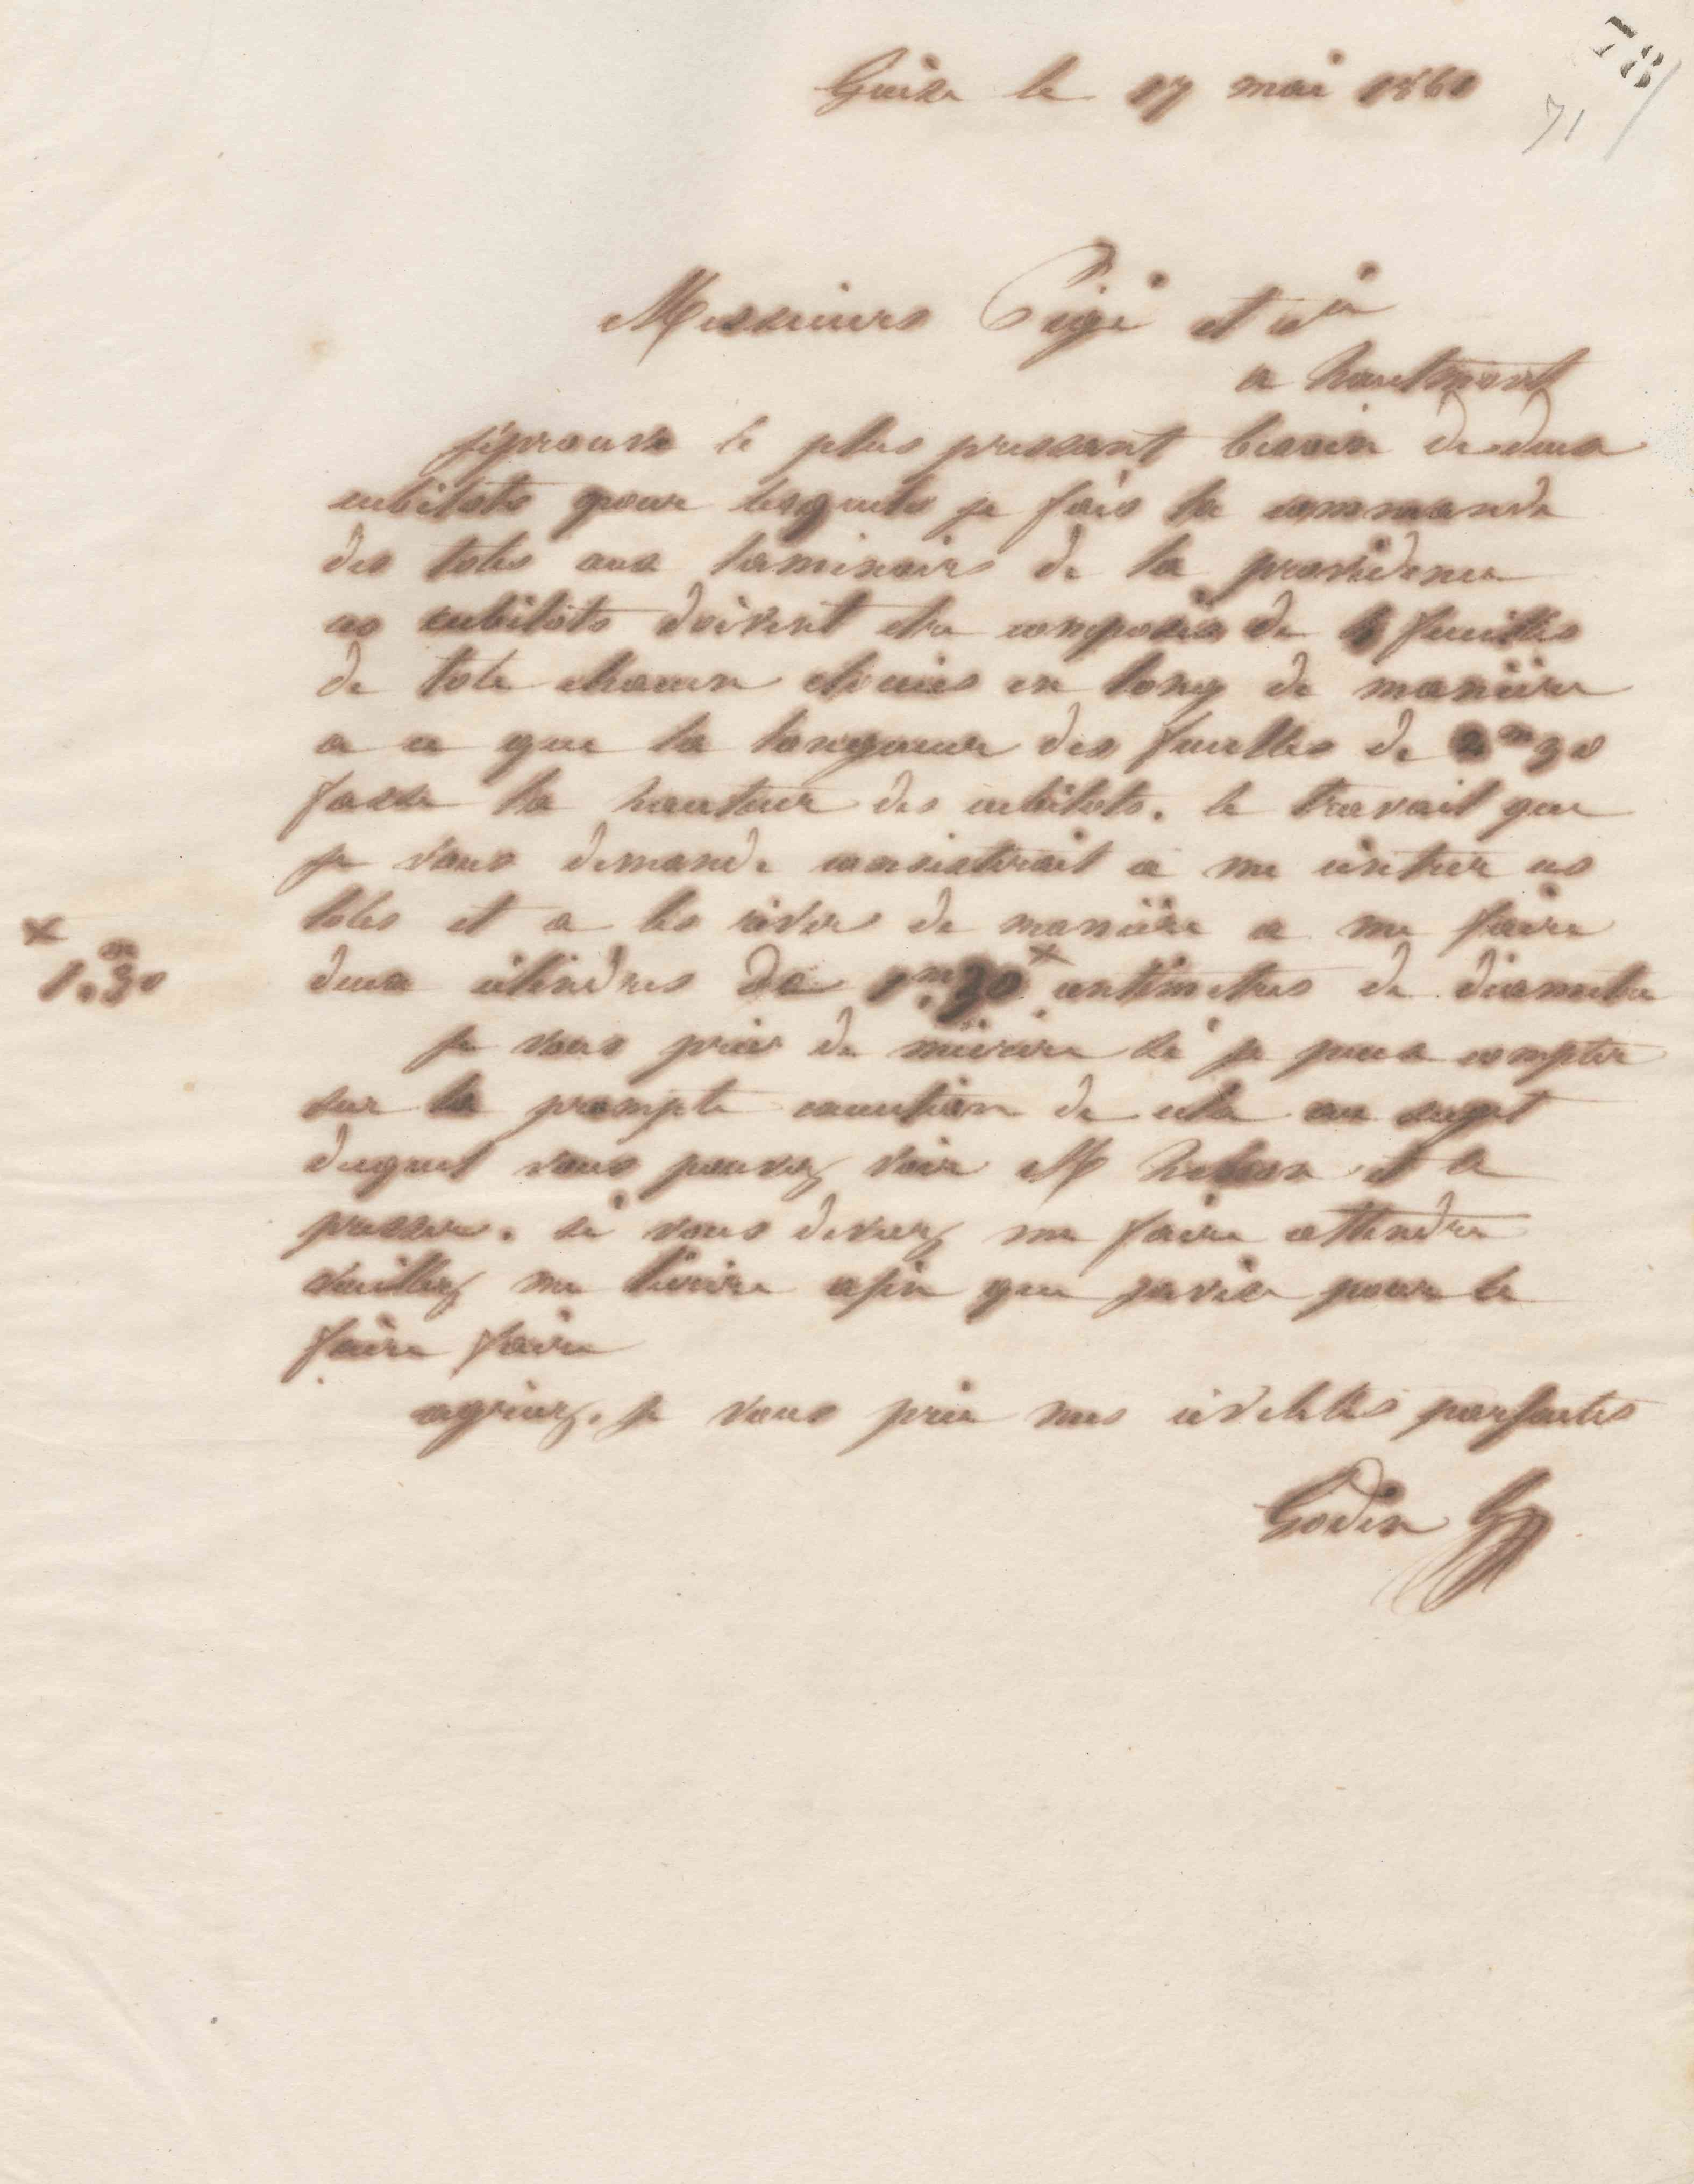 78
71
Guise le 17 mai 1861
Messieurs Pigé et Cie
a hautmont
j'éprouve le plus pressant besoin de deux
cubilots pour lesquels je fais la commande
des toles aux laminoirs de la providence
ces cubilots doivent etre composés de feuilles
de tole chacun en long de manière
a ce que la longueur des feuilles de 2m30
fasse la hauteur des cubilots. le travail que
je vous demande consisterait a me cintrer ces
toles et a les river de manière a me faire
deux cilindres de 1m.30 x centimetres de diametre
x
1.m30
je vous prie de m'écrire si je peux compter
sur la prompte execution de cela au sujet
duquel vous pouvez voir M et le
presser. si vous deviez me faire attendre
veuillez me l'écrire afin que j'avise pour le
faire faire
agréez, je vous prie mes civilités parfaites
Godin